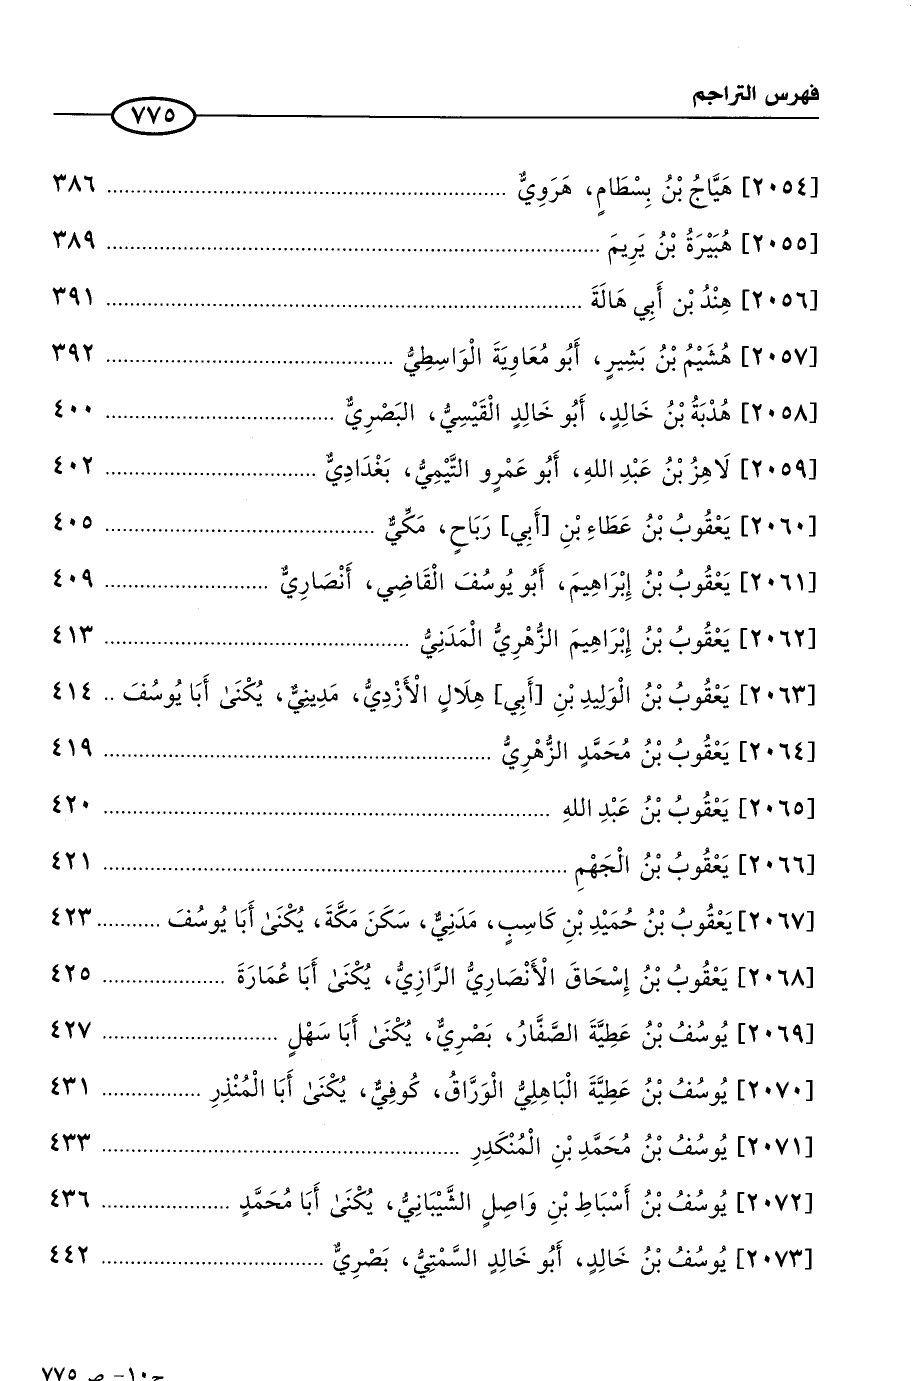 فهرس التراجم
٧٧٥
[٢٠٥٤] هَيَّاجُ بْنُ بِسْطَامٍ، هَرَوِيٌّ ........ ٣٨٦
[٢٠٥٥] هُبَيْرَةُ بْنُ يَرِيمَ ........ ٣٨٩
[٢٠٥٦] هِنْدُ بْن أَبِي هَالَةَ ........ ٣٩١
[٢٠٥٧] هُشَيْمُ بْنُ بَشِيرٍ، أَبُو مُعَاوِيَةَ الْوَاسِطِيُّ ........ ٣٩٢
[٢٠٥٨] هُدْبَةُ بْنُ خَالِدٍ، أَبُو خَالِدٍ الْقَيْسِيُّ، البَصْرِيُّ ........ ٤٠٠
[٢٠٥٩] لَاهِزُ بْنُ عَبْدِ اللهِ، أَبُو عَمْرٍو التَّيْمِيُّ، بَغْدَادِيٌّ ........ ٤٠٢
[٢٠٦٠] يَعْقُوبُ بْنُ عَطَاءِ بْنِ [أَبِي] رَبَاحٍ، مَكِّيٌّ ........ ٤٠٥
[٢٠٦١] يَعْقُوبُ بْنُ إِبْرَاهِيمَ، أَبُو يُوسُفَ الْقَاضِي، أَنْصَارِيٌّ ........ ٤٠٩
[٢٠٦٢] يَعْقُوبُ بْنُ إِبْرَاهِيمَ الزُّهْرِيُّ الْمَدَنِيُّ ........ ٤١٣
[٢٠٦٣] يَعْقُوبُ بْنُ الْوَلِيدِ بْنِ [أَبِي] هِلَالٍ الْأَزْدِيُّ، مَدِينِيٌّ، يُكْنَىٰ أَبَا يُوسُفَ .. ٤١٤
[٢٠٦٤] يَعْقُوبُ بْنُ مُحَمَّدٍ الزُّهْرِيُّ ........ ٤١٩
[٢٠٦٥] يَعْقُوبُ بْنُ عَبْدِ اللهِ ........ ٤٢٠
[٢٠٦٦] يَعْقُوبُ بْنُ الْجَهْمِ ........ ٤٢١
[٢٠٦٧] يَعْقُوبُ بْنُ حُمَيْدِ بْنِ كَاسِبٍ، مَدَنِيٌّ، سَكَنَ مَكَّةَ، يُكْنَىٰ أَبَا يُوسُفَ ........ ٤٢٣
[٢٠٦٨] يَعْقُوبُ بْنُ إِسْحَاقَ الْأَنْصَارِيُّ الرَّازِيُّ، يُكْنَىٰ أَبَا عُمَارَةَ ........ ٤٢٥
[٢٠٦٩] يُوسُفُ بْنُ عَطِيَّةَ الصَّفَّارُ، بَصْرِيٌّ، يُكْنَىٰ أَبَا سَهْلٍ ........ ٤٢٧
[٢٠٧٠] يُوسُفُ بْنُ عَطِيَّةَ الْبَاهِلِيُّ الْوَرَّاقُ، كُوفِيٌّ، يُكْنَىٰ أَبَا الْمُنْذِرِ ........ ٤٣١
[٢٠٧١] يُوسُفُ بْنُ مُحَمَّدِ بْنِ الْمُنْكَدِرِ ........ ٤٣٣
[٢٠٧٢] يُوسُفُ بْنُ أَسْبَاطِ بْنِ وَاصِلٍ الشَّيْبَانِيُّ، يُكْنَىٰ أَبَا مُحَمَّدٍ ........ ٤٣٦
[٢٠٧٣] يُوسُفُ بْنُ خَالِدٍ، أَبُو خَالِدٍ السَّمْتِيُّ، بَصْرِيٌّ ........ ٤٤٢
ج١٠- ص ٧٧٥